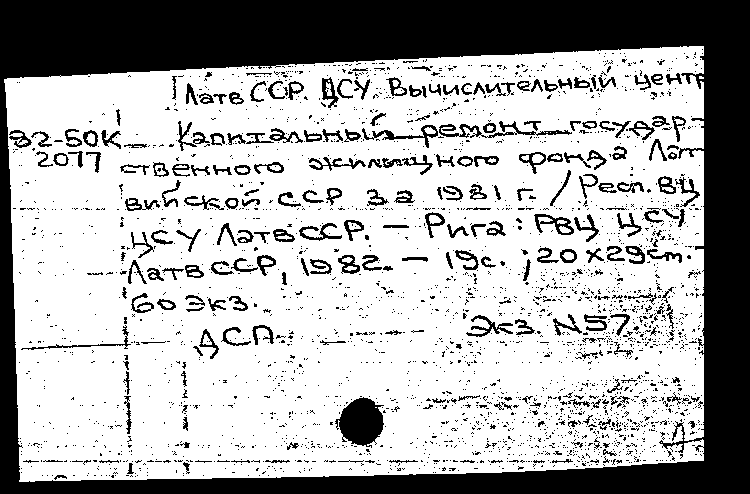 Латв ССР. ЦСУ. Вычислительный центр
82-50К Капитальный ремонт государ-
2077 ственного жилищного фонда Лат-
вийской ССР за 1981 г. / Респ. ВЦ
ЦСУ Латв ССР. — Рига : РВЦ ЦСУ
Латв ССР, 1982. — 19с. ; 20×29см. -
60 экз.
ДСП. Экз. N57.